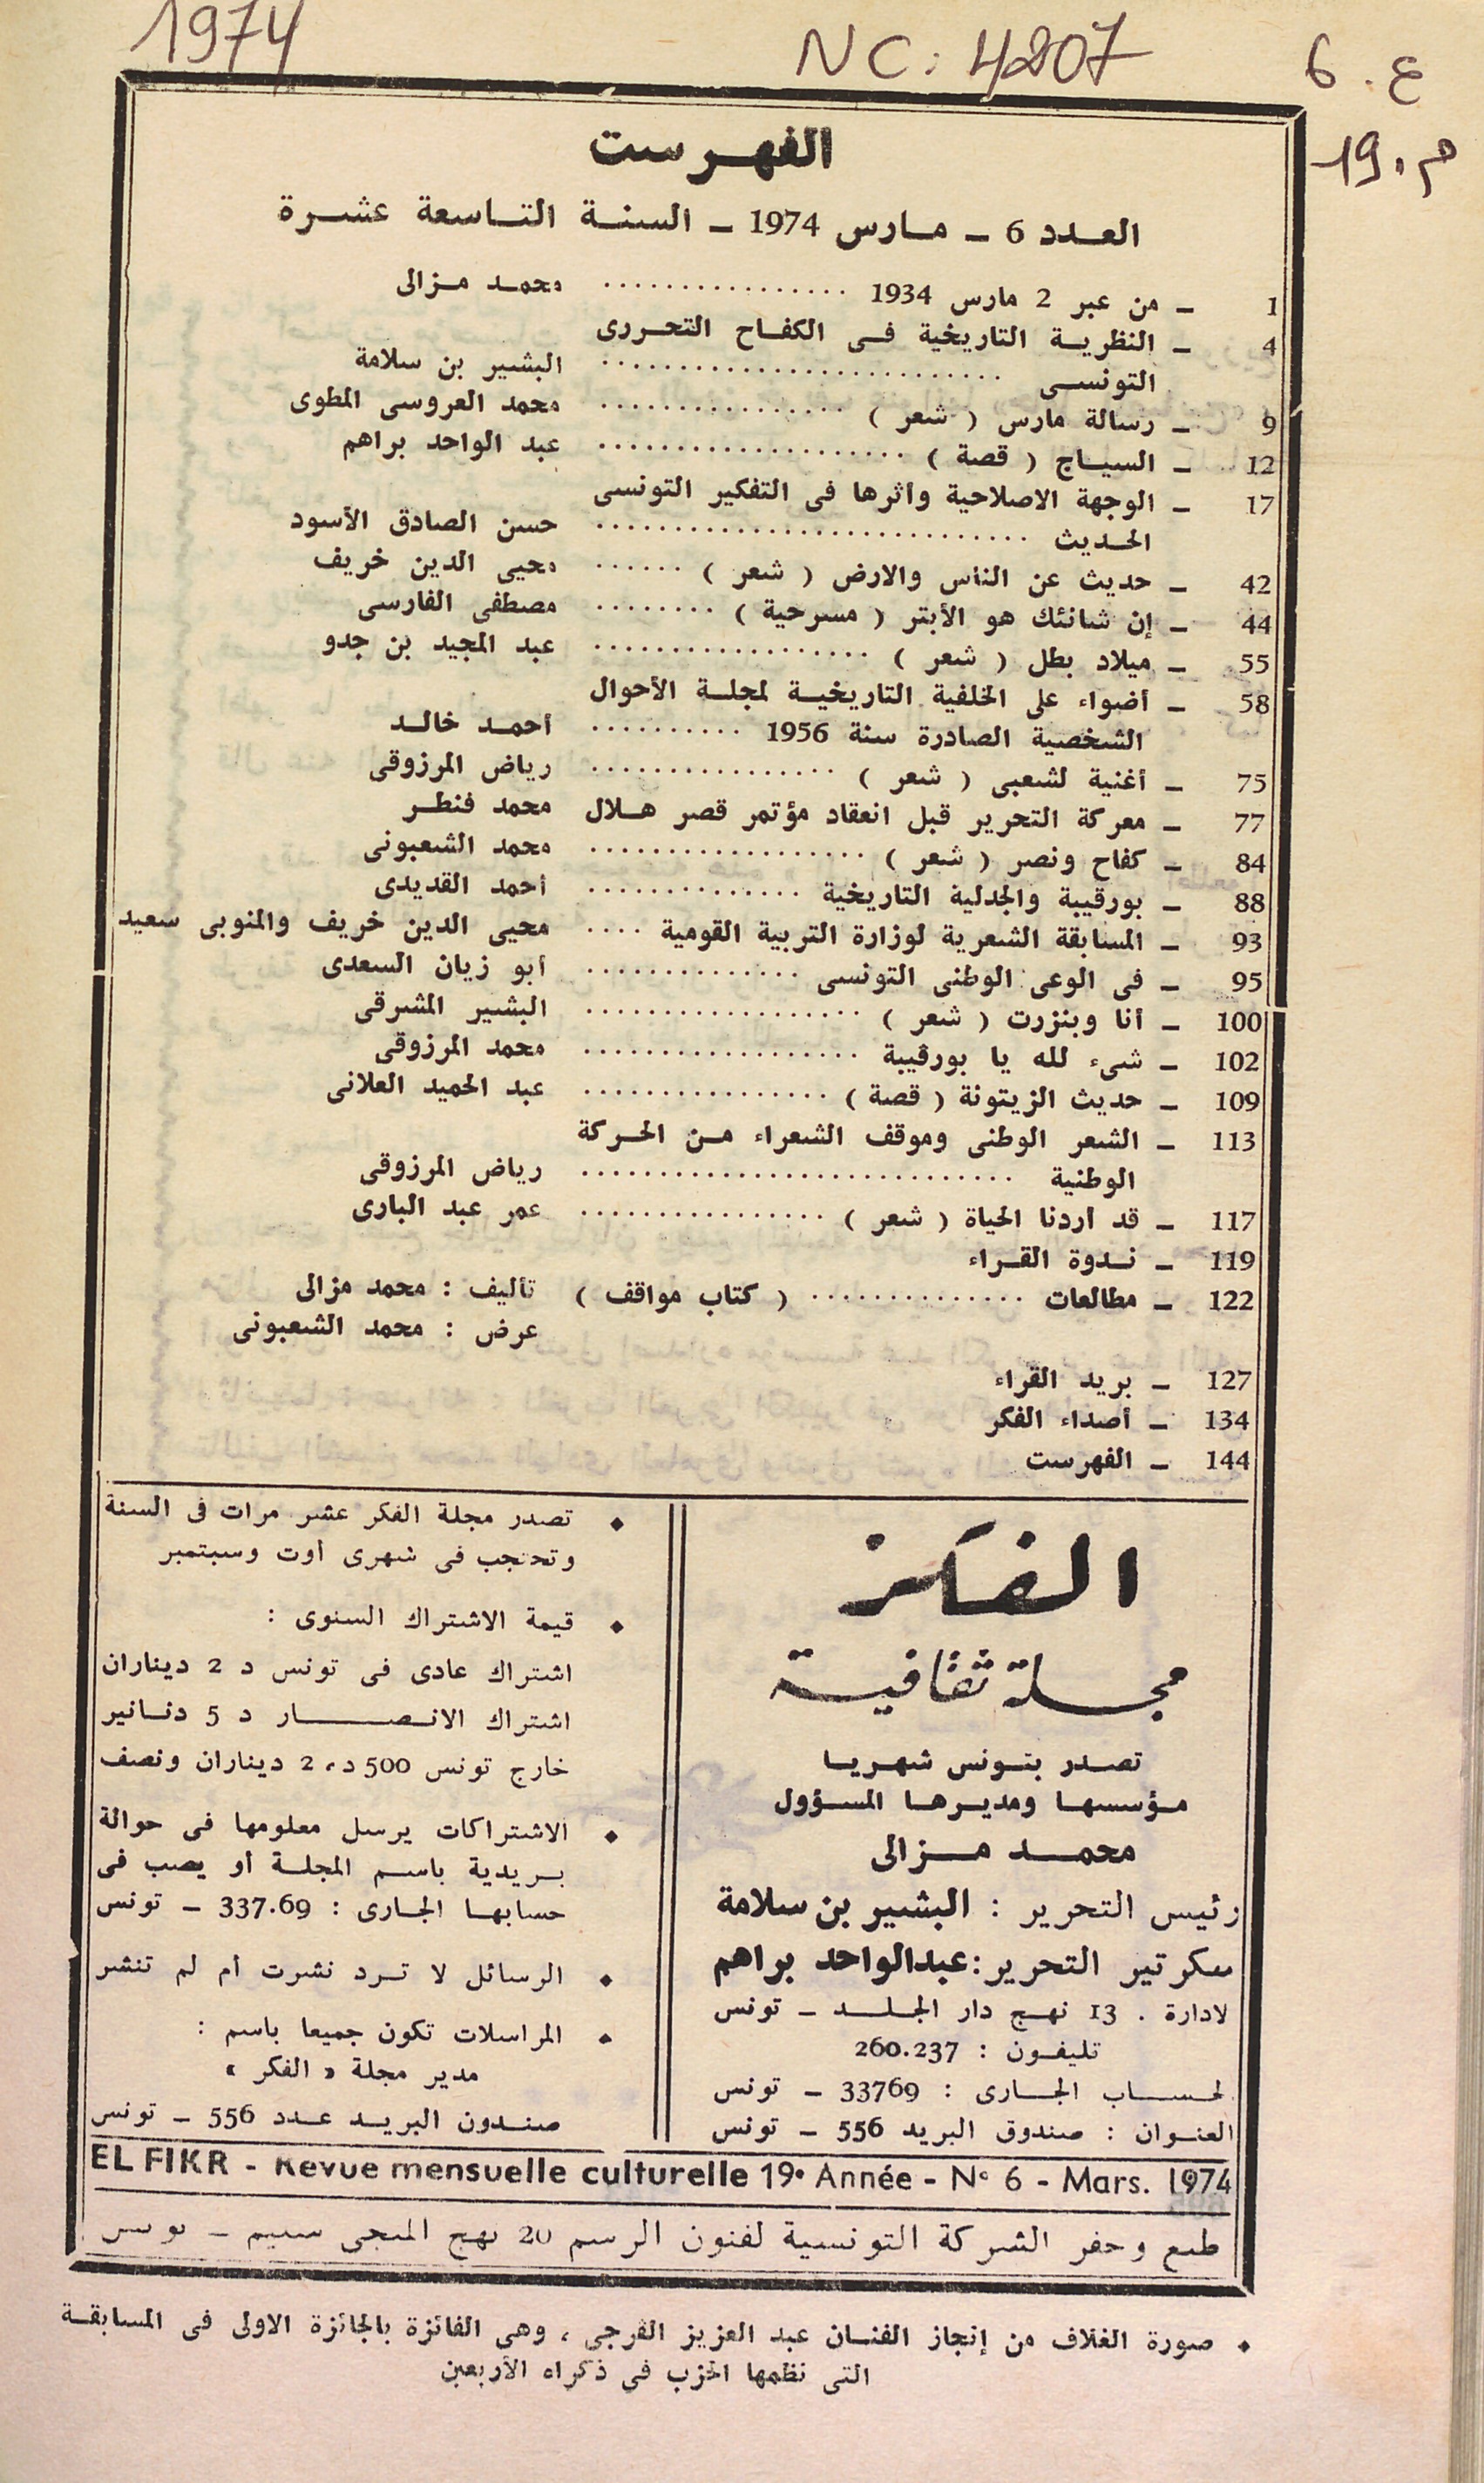 1974
NC: 4207
ع. 6
م. 19
الفهرست
العدد 6 ـ مارس 1974 ـ السنة التاسعة عشرة
1 ـ من عبر 2 مارس 1934 ................ محمد مزالى
4 ـ النظرية التاريخية فى الكفاح التحررى
التونسى .......................... البشير بن سلامة
9 ـ رسالة مارس ( شعر ) ................ محمد العروسى المطوى
12 ـ السياج ( قصة ) .................... عبد الواحد براهم
17 ـ الوجهة الاصلاحية وأثرها فى التفكير التونسى
الحديث ............................ حسن الصادق الأسود
42 ـ حديث عن الناس والارض ( شعر ) ...... محيى الدين خريف
44 ـ إن شانئك هو الأبتر ( مسرحية ) ........ مصطفى الفارسى
55 ـ ميلاد بطل ( شعر ) .................. عبد المجيد بن جدو
58 ـ أضواء على الخلفية التاريخية لمجلة الأحوال
الشخصية الصادرة سنة 1956 .......... أحمد خالد
75 ـ أغنية لشعبى ( شعر ) ................ رياض المرزوقى
77 ـ معركة التحرير قبل انعقاد مؤتمر قصر هلال محمد فنطر
84 ـ كفاح ونصر ( شعر ) .................. محمد الشعبونى
88 ـ بورقيبة والجدلية التاريخية .............. أحمد القديدى
93 ـ المسابقة الشعرية لوزارة التربية القومية .... محيى الدين خريف والمنوبى سعيد
95 ـ فى الوعى الوطنى التونسى .............. أبو زيان السعدى
100 ـ أنا وبنزرت ( شعر ) .................. البشير المشرقى
102 ـ شىء لله يا بورقيبة .................. محمد المرزوقى
109 ـ حديث الزيتونة ( قصة ) ................ عبد الحميد العلانى
113 ـ الشعر الوطنى وموقف الشعراء من الحركة
الوطنية ............................ رياض المرزوقى
117 ـ قد أردنا الحياة ( شعر ) ................ عمر عبد البارى
119 ـ ندوة القراء
122 ـ مطالعات .............. ( كتاب مواقف ) تأليف : محمد مزالى
عرض : محمد الشعبونى
127 ـ بريد القراء
134 ـ أصداء الفكر
144 ـ الفهرست
الفكر
مجلة ثقافية
تصدر بتونس شهريا
مؤسسها ومديرها المسؤول
محمد مزالى
رئيس التحرير : البشير بن سلامة
سكرتير التحرير : عبدالواحد براهم
لادارة . 13 نهج دار الجلد ـ تونس
تليفون : 260.237
لحساب الجارى : 33769 ـ تونس
العنوان : صندوق البريد 556 ـ تونس
♦ تصدر مجلة الفكر عشر مرات فى السنة
وتحتجب فى شهرى أوت وسبتمبر
♦ قيمة الاشتراك السنوى :
اشتراك عادى فى تونس د 2 ديناران
اشتراك الانصار د 5 دنانير
خارج تونس 500 د، 2 ديناران ونصف
♦ الاشتراكات يرسل معلومها فى حوالة
بريدية باسم المجلة أو يصب فى
حسابها الجارى : 337.69 ـ تونس
♦ الرسائل لا ترد نشرت أم لم تنشر
♦ المراسلات تكون جميعا باسم :
مدير مجلة « الفكر »
صندون البريد عدد 556 ـ تونس
EL FIKR - Revue mensuelle culturelle 19e Année - N° 6 - Mars. 1974
طبع وحفر الشركة التونسية لفنون الرسم 20 نهج المنجى سليم ـ تونس
♦ صورة الغلاف من إنجاز الفنان عبد العزيز القرجى ، وهى الفائزة بالجائزة الاولى فى المسابقة
التى نظمها الحزب فى ذكراه الأربعين